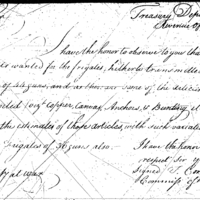 Treasury Dep
Revenue Of
I have the honor to observe to you that
is wanted for the frigates, hitherto transmitted
of 44 guns, and as there are some of the articles
Copper, Canvas, Anchors, & Bunting
the estimates of those articles, with such variati
frigates of 36 guns also.
I have the honor
respect for y
Signed T. Co
Commiss of
at War.